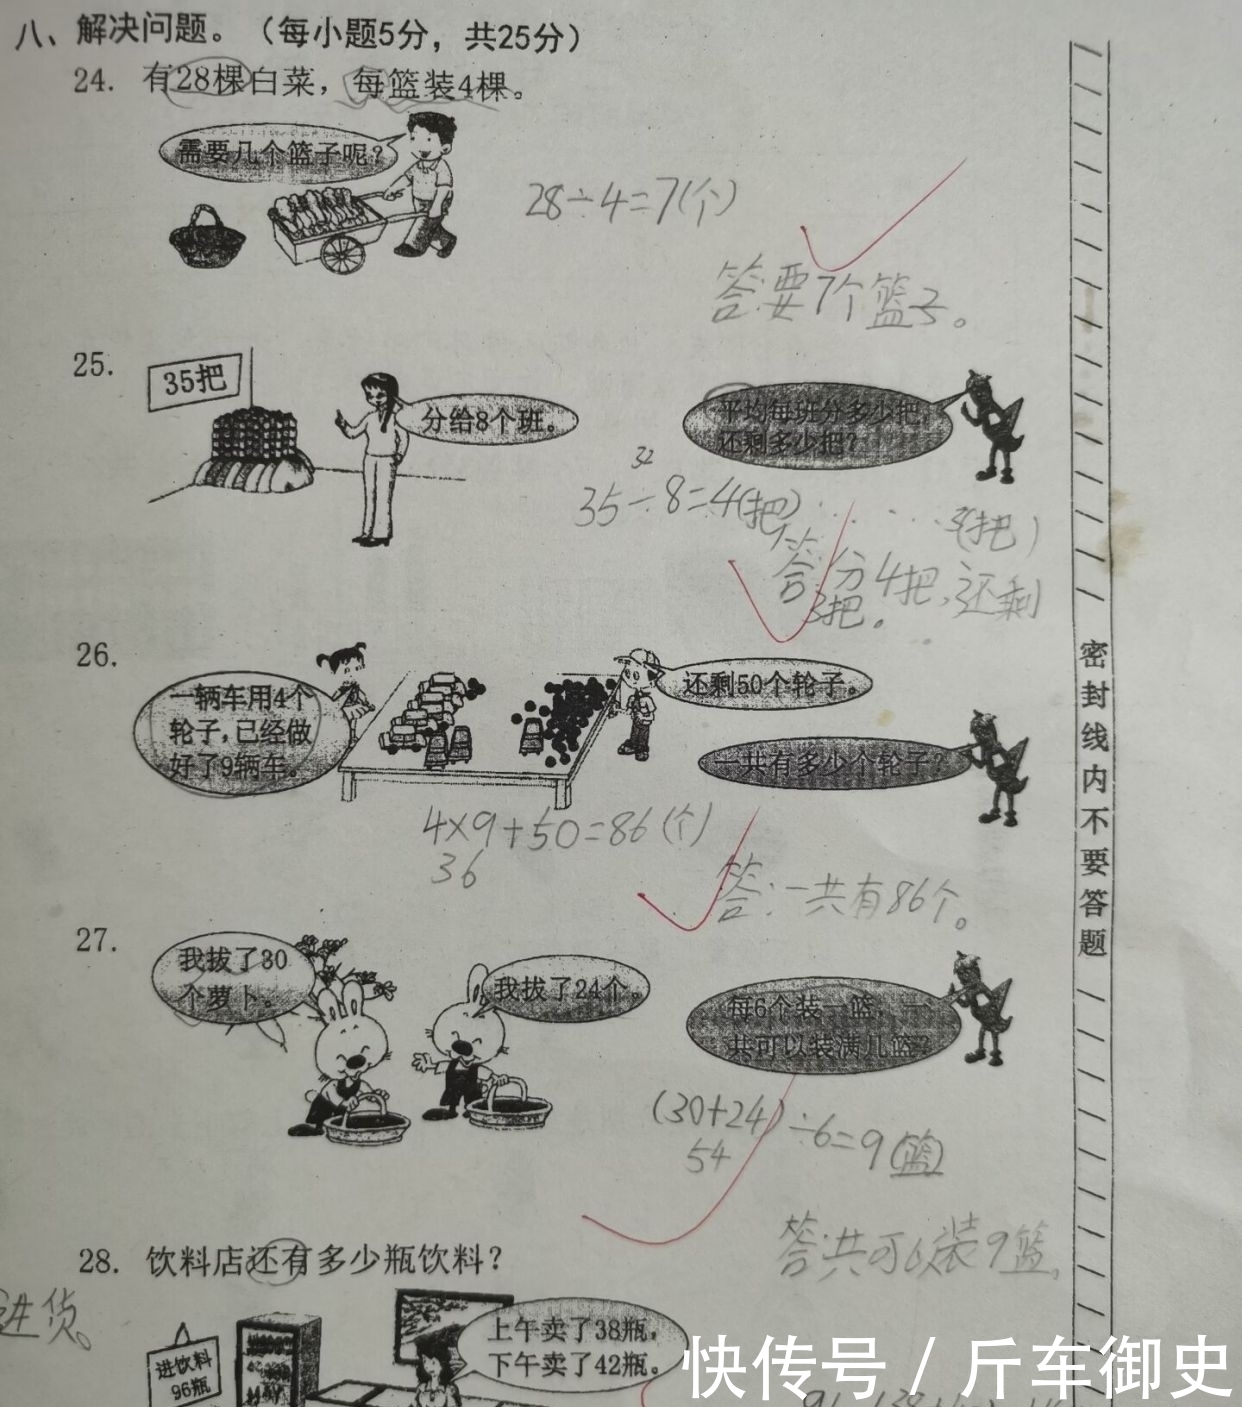 八、解决问题。（每小题5分，共25分）
24. 有28棵白菜，每篮装4棵。
需要几个篮子呢？
28÷4=7(个)
答:要7个篮子。
25.
35把
分给8个班。
平均每班分多少把，
还剩多少把？
32
35÷8=4(把)......3(把)
答:分4把,还剩
3把。
26.
一辆车用4个
轮子,已经做
好了9辆车。
还剩50个轮子。
一共有多少个轮子？
4×9+50=86(个)
36
答:一共有86个。
27.
我拔了30
个萝卜。
我拔了24个。
每6个装一篮，一
共可以装满几篮？
(30+24)÷6=9(篮)
54
答:共可以装9篮。
28. 饮料店还有多少瓶饮料？
进货。
进饮料
96瓶
上午卖了38瓶，
下午卖了42瓶。
密封线内不要答题
快传号 / 斤车御史